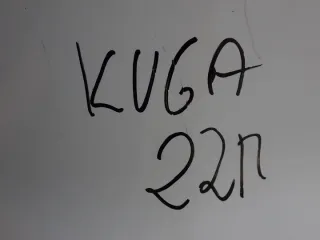 KUGA
22п